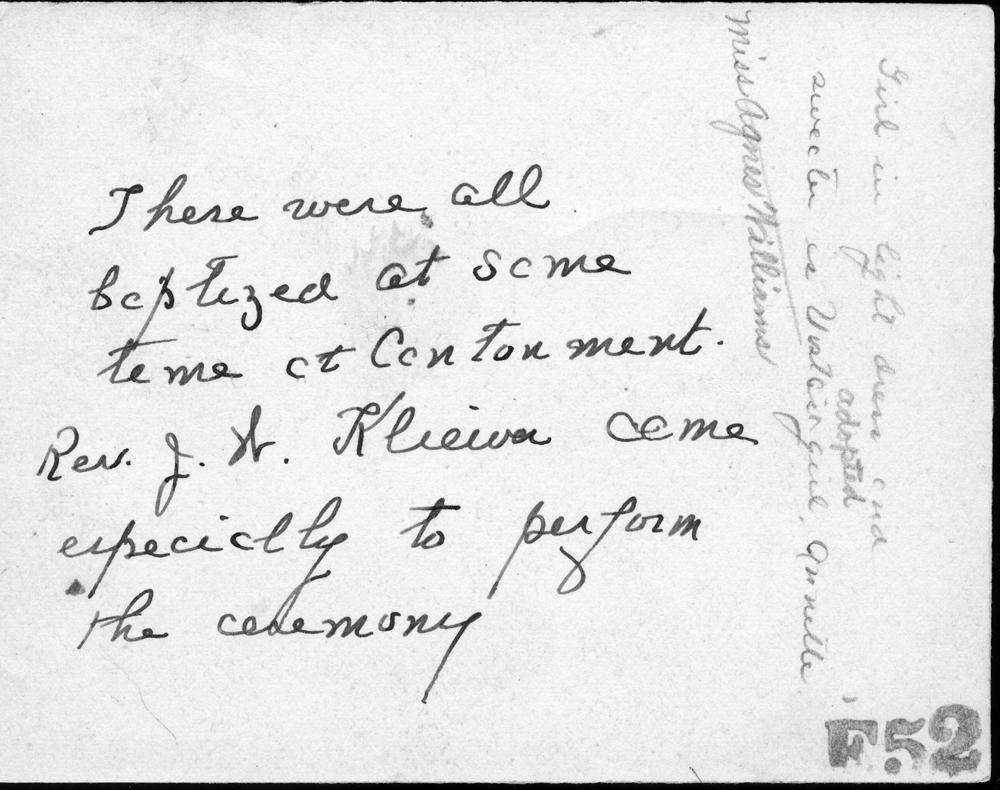 These were all
baptized at same
time at Cantonment.
Rev. J. W. Kliewer came
especially to perform
the ceremony
Girl in light dress and
sweater is Unatain girl, Annette
adopted
Miss Agnes Williams
F.52